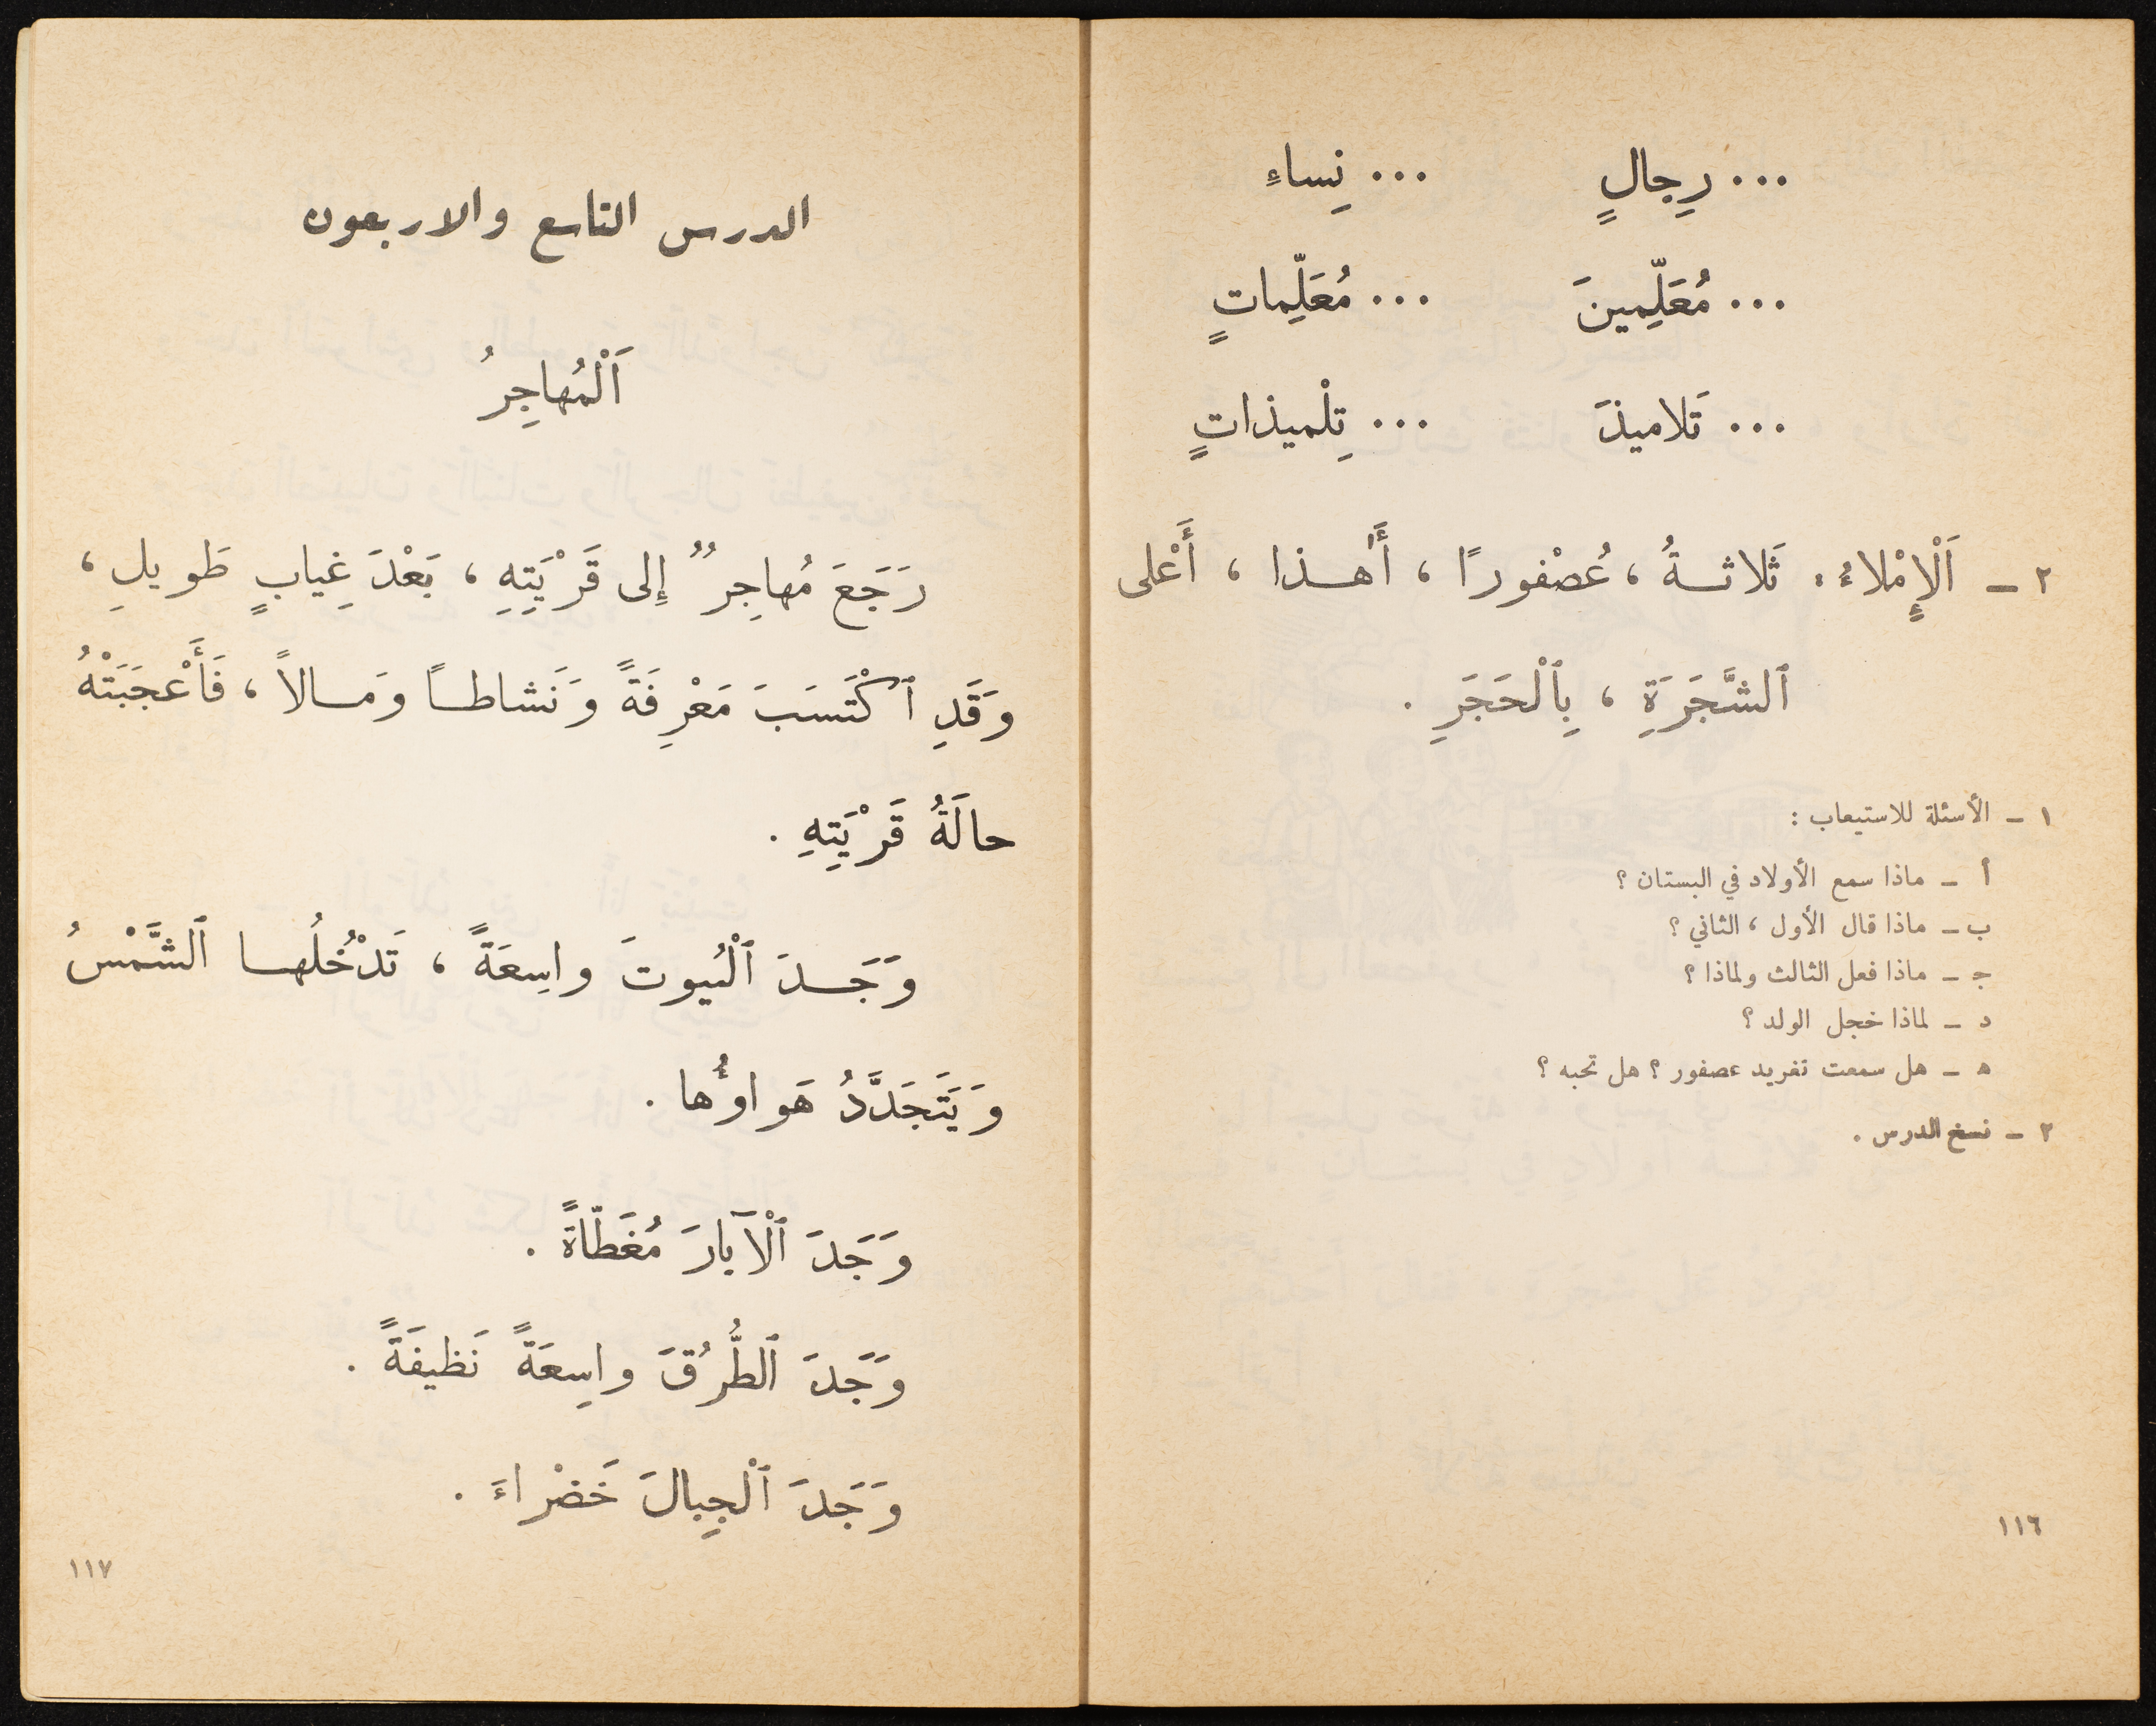 ... رِجالٍ ... نِساءٍ
... مُعَلِّمينَ ... مُعَلِّماتٍ
... تَلاميذَ ... تِلْميذاتٍ
٢ – اَلْإِمْلاءُ: ثَلاثةُ ، عُصْفورًا ، أَهٰذا ، أَعْلى
ٱلشَّجَرَةِ ، بِٱلْحَجَرِ .
١ – الأسئلة للاستيعاب :
أ – ماذا سمع الأولاد في البستان ؟
ب – ماذا قال الأول ، الثاني ؟
ج – ماذا فعل الثالث ولماذا ؟
د – لماذا خجل الولد ؟
ه – هل سمعت تغريد عصفور ؟ هل تحبه ؟
٢ – نسخ الدرس .
١١٦
الدرس التاسع والاربعون
اَلْمُهاجِرُ
رَجَعَ مُهاجِرٌ إِلى قَرْيَتِهِ ، بَعْدَ غِيابٍ طَويلِ ،
وَقَدِ ٱكْتَسَبَ مَعْرِفَةً وَنَشاطاً وَمالاً ، فَأَعْجَبَتْهُ
حالَةُ قَرْيَتِهِ .
وَجَدَ ٱلْبُيوتَ واسِعَةً ، تَدْخُلُها ٱلشَّمْسُ
وَيَتَجَدَّدُ هَواؤُها .
وَجَدَ ٱلْآبارَ مُغَطّاةً .
وَجَدَ ٱلطُّرُقَ واسِعَةً نَظيفَةً .
وَجَدَ ٱلْجِبالَ خَضْراءَ .
١١٧